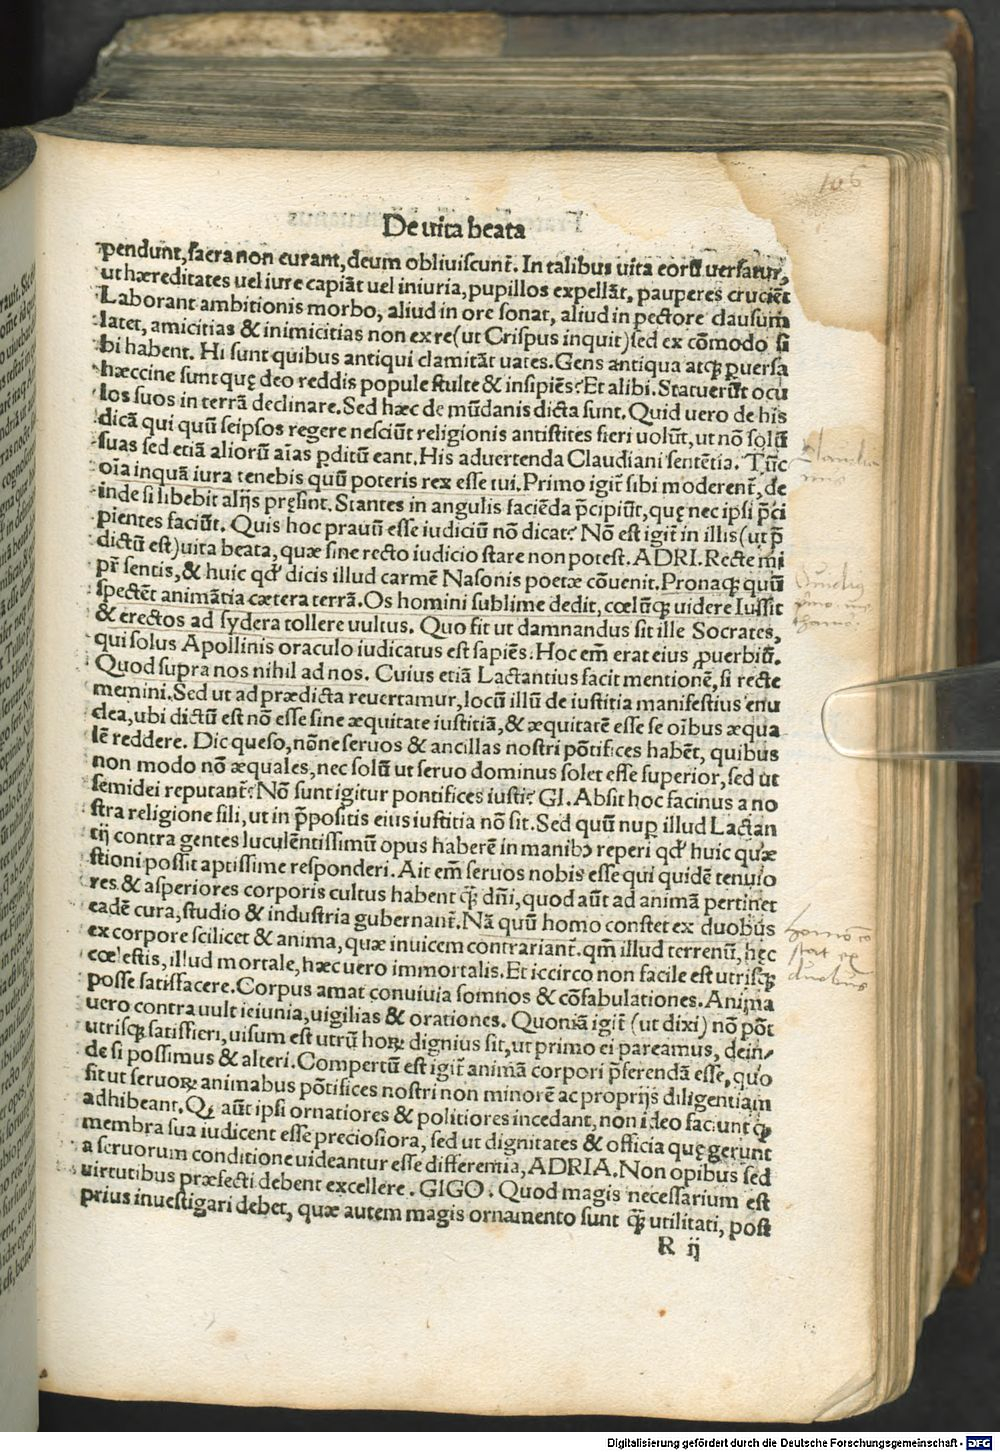 106
De uita beata
pendunt, sacra non curant, deum obliuiscunt᷑. In talibus uita eorũ uersatur,
ut hæreditates uel iure capiãt uel iniuria, pupillos expellãt, pauperes cruciẽt
Laborant ambitionis morbo, aliud in ore sonat, aliud in pectore clausum
latet, amicitias & inimicitias non ex re (ut Crispus inquit) sed ex cõmodo si
bi habent. Hi sunt quibus antiqui clamitãt uates. Gens antiqua atqꝫ ꝑuersa
hæccine sunt quę deo reddis popule stulte & insipiẽs? Et alibi. Statuerũt ocu
los suos in terrã declinare. Sed hæc de mũdanis dicta sunt. Quid uero de his
dicã qui quũ seipsos regere nesciũt religionis antistites fieri uolũt, ut nõ solũ
suas sed etiã aliorũ aĩas ꝑditũ eant. His aduertenda Claudiani sentẽtia. Tũc
oĩa inquã iura tenebis quũ poteris rex esse tui. Primo igit᷑ sibi moderent᷑, de
inde si libebit alijs pręsint. Stantes in angulis faciẽda p̃cipiũt, quę nec ipsi p̃ci
pientes faciũt. Quis hoc prauũ esse iudiciũ nõ dicat? Nõ est igit᷑ in illis (ut p̃
dictũ est) uita beata, quæ sine recto iudicio stare non potest. ADRI. Recte mi
pr̃ sentis, & huic qd̛ dicis illud carmẽ Nasonis poetæ cõuenit. Pronaqꝫ quũ
spectẽt animãtia cætera terrã. Os homini sublime dedit, cœlũqꝫ uidere Iussit
& erectos ad sydera tollere uultus. Quo fit ut damnandus sit ille Socrates,
qui solus Apollinis oraculo iudicatus est sapiẽs. Hoc em̃ erat eius ꝓuerbiũ.
Quod supra nos nihil ad nos. Cuius etiã Lactantius facit mentionẽ, si recte
memini. Sed ut ad prædicta reuertamur, locũ illũ de iustitia manifestius enu
clea, ubi dictũ est nõ esse sine æquitate iustitiã, & æquitatẽ esse se oĩbus æqua
lẽ reddere. Dic queso, nõne seruos & ancillas nostri põtifices habẽt, quibus
non modo nõ æquales, nec solũ ut seruo dominus solet esse superior, sed ut
semidei reputant᷑? Nõ sunt igitur pontifices iusti? GI. Absit hoc facinus a no
stra religione fili, ut in p̃positis eius iustitia nõ sit. Sed quũ nuꝑ illud Lactan
tij contra gentes luculẽntissimũ opus haberẽ in manibꝰ reperi qd̛ huic quæ
stioni possit aptissime responderi. Ait em̃ seruos nobis esse qui quidẽ tenuio
res & asperiores corporis cultus habent q̃ꝫ dñi, quod aũt ad animã pertinet
eadẽ cura, studio & industria gubernant᷑. Nã quũ homo constet ex duobus
ex corpore scilicet & anima, quæ inuicem contrariant᷑. qm̃ illud terrenũ, hęc
cœlestis, illud mortale, hæc uero immortalis. Et iccirco non facile est utrisqꝫ
posse satisfacere. Corpus amat conuiuia somnos & cõfabulationes. Anima
uero contra uult ieiunia, uigilias & orationes. Quoniã igit᷑ (ut dixi) nõ põt
utrisqꝫ satisfieri, uisum est utrũ hoꝝ dignius sit, ut primo ei pareamus, dein/
de si possimus & alteri. Compertũ est igit᷑ animã corpori p̃ferendã esse, quo
fit ut seruoꝝ animabus põtifices nostri non minorẽ ac proprijs diligentiam
adhibeant. Qꝫ aũt ipsi ornatiores & politiores incedant, non ideo faciunt q̃ꝫ
membra sua iudicent esse preciosiora, sed ut dignitates & officia quę gerunt
a seruorum conditione uideantur esse differentia, ADRIA. Non opibus sed
uirtutibus præfecti debent excellere. GIGO. Quod magis necessarium est
prius inuestigari debet, quæ autem magis ornamento sunt q̃ꝫ utilitati, post
R ij
homo cõ
stat ex
duobus
Digitalisierung gefördert durch die Deutsche Forschungsgemeinschaft - DFG